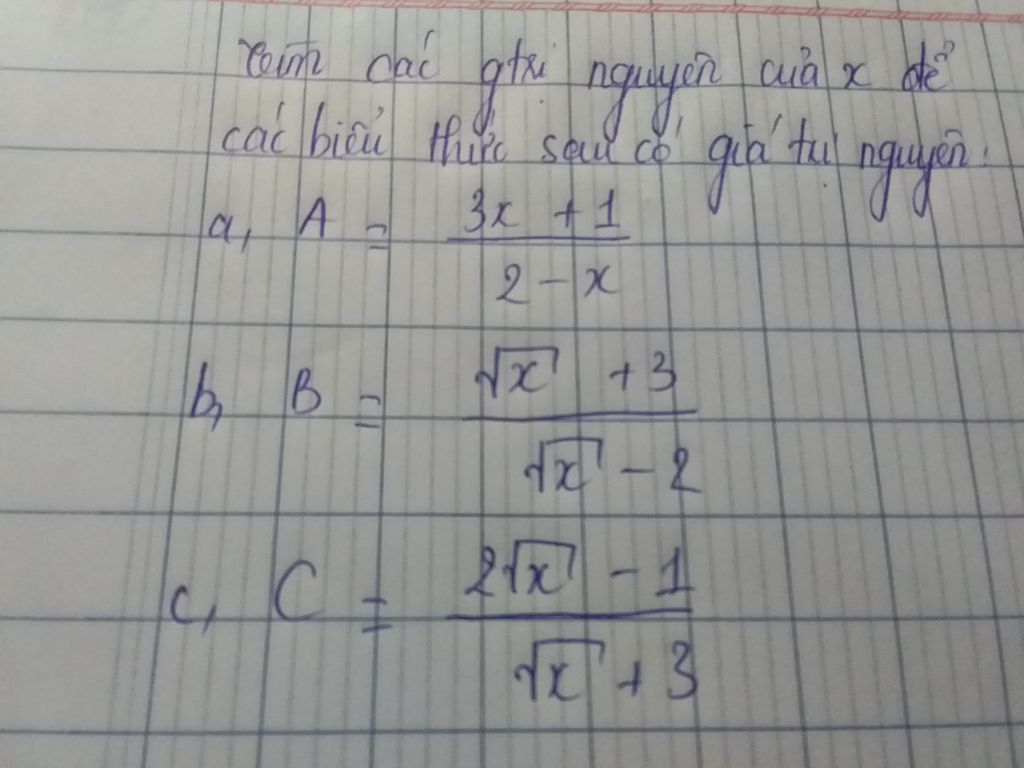 Tìm các gtrị nguyên của x để
các biểu thức sau có giá trị nguyên:
a, A = (3x + 1)/(2 - x)
b, B = (√x + 3)/(√x - 2)
c, C = (2√x - 1)/(√x + 3)